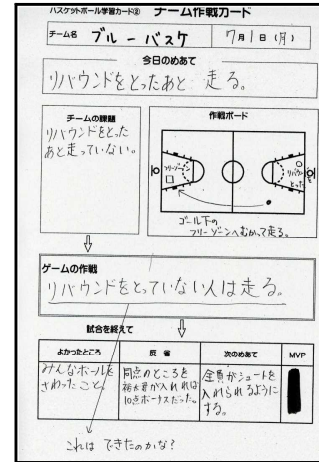 バスケットボール学習カード② チーム作戦カード
チーム名 ブルーバスケ 7月1日(月)
今日のめあて
リバウンドをとったあと 走る。
チームの課題
リバウンドをとった
あと走っていない。
作戦ボード
フリーゾーン
リバウンド
とった
ゴール下の
フリーゾーンへむかって走る。
ゲームの作戦
リバウンドをとっていない人は走る。
試合を終えて
よかったところ 反省 次のめあて MVP
みんなボールを
さわったこと。
同点のところを
祐太君が入れれば
10点ボーナスだった。
全員がシュートを
入れられるように
する。
これは できたのかな?